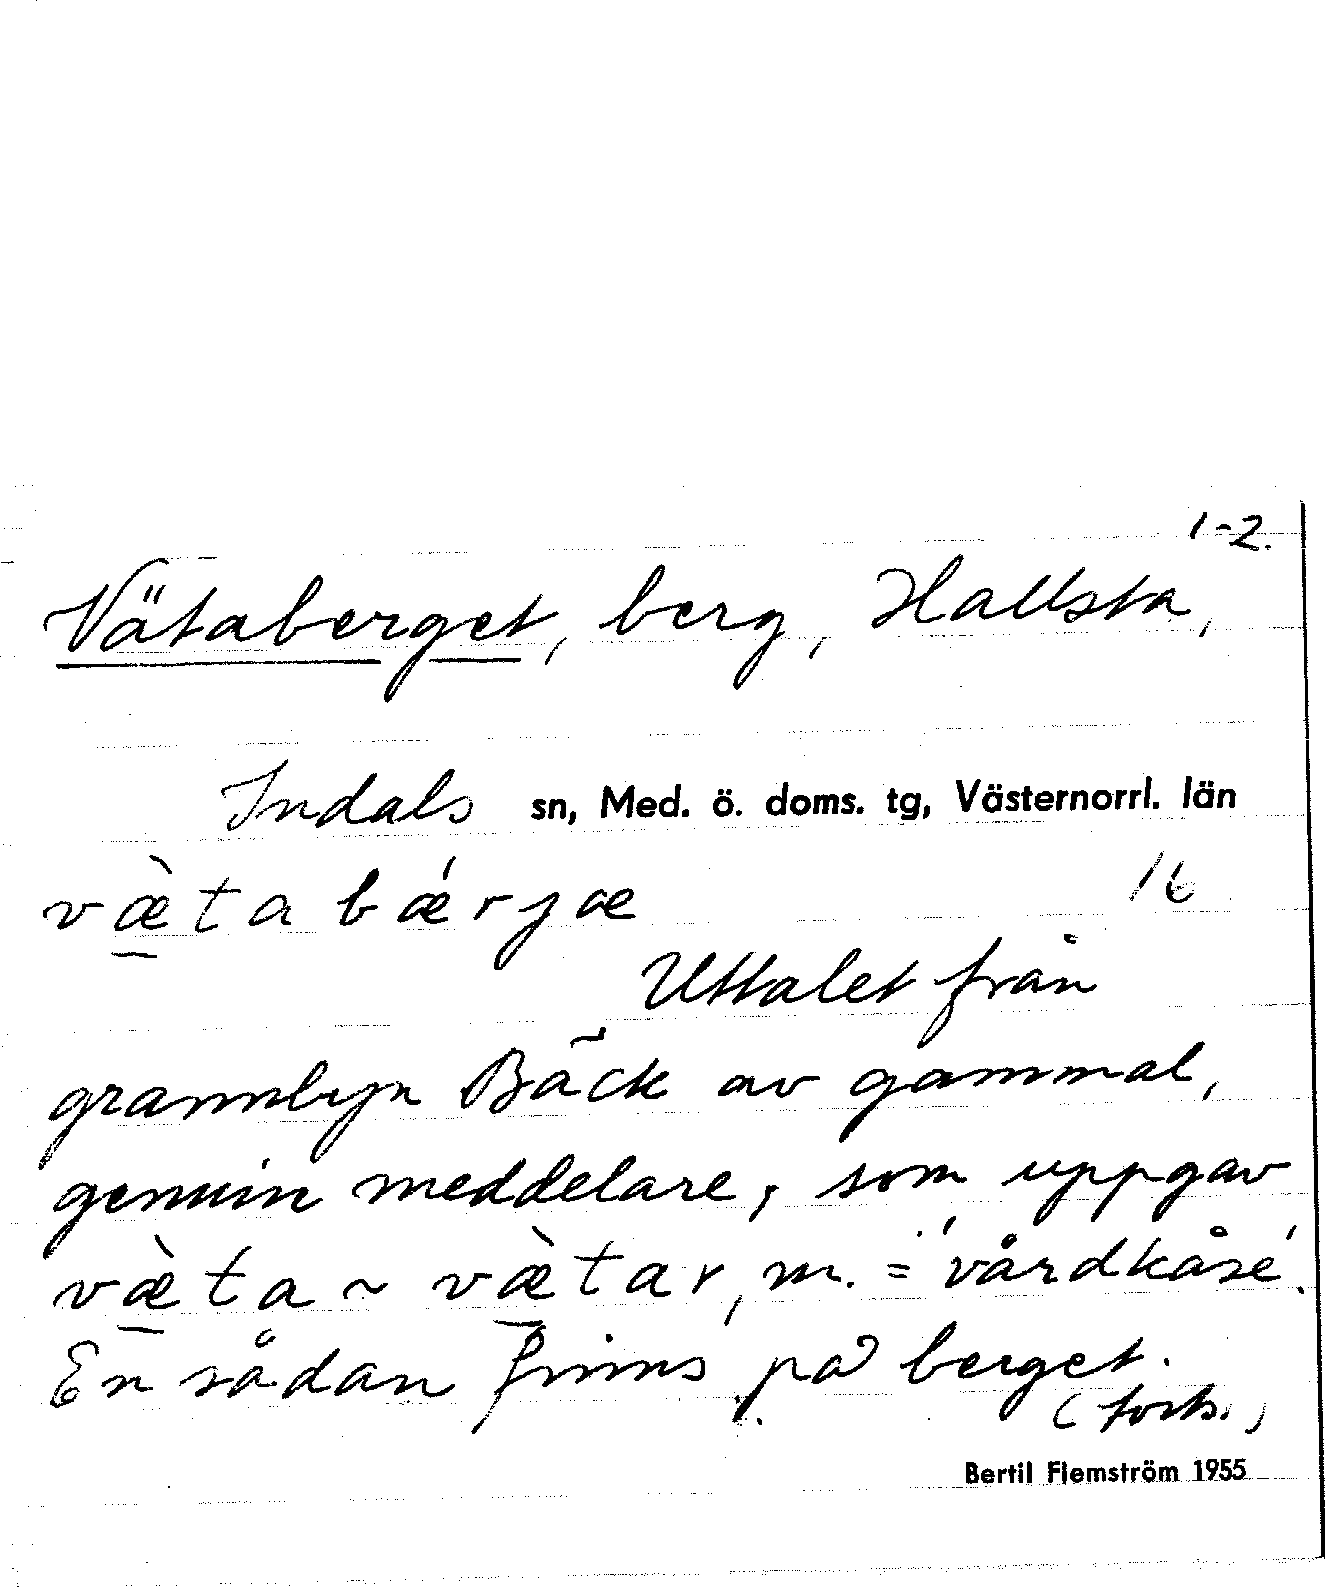 1-2.
Vätaberget, berg, Hallsta,
Indals sn, Med. ö. doms. tg, Västernorrl. län
væ̀tabǽrjæ 16
Uttalet från
grannbyn Bäck av gammal,
genuin meddelare, som uppgav
væ̀ta ~ væ̀tar, m. = 'vårdkase'.
En sådan finns på berget.
(forts.)
Bertil Flemström 1955